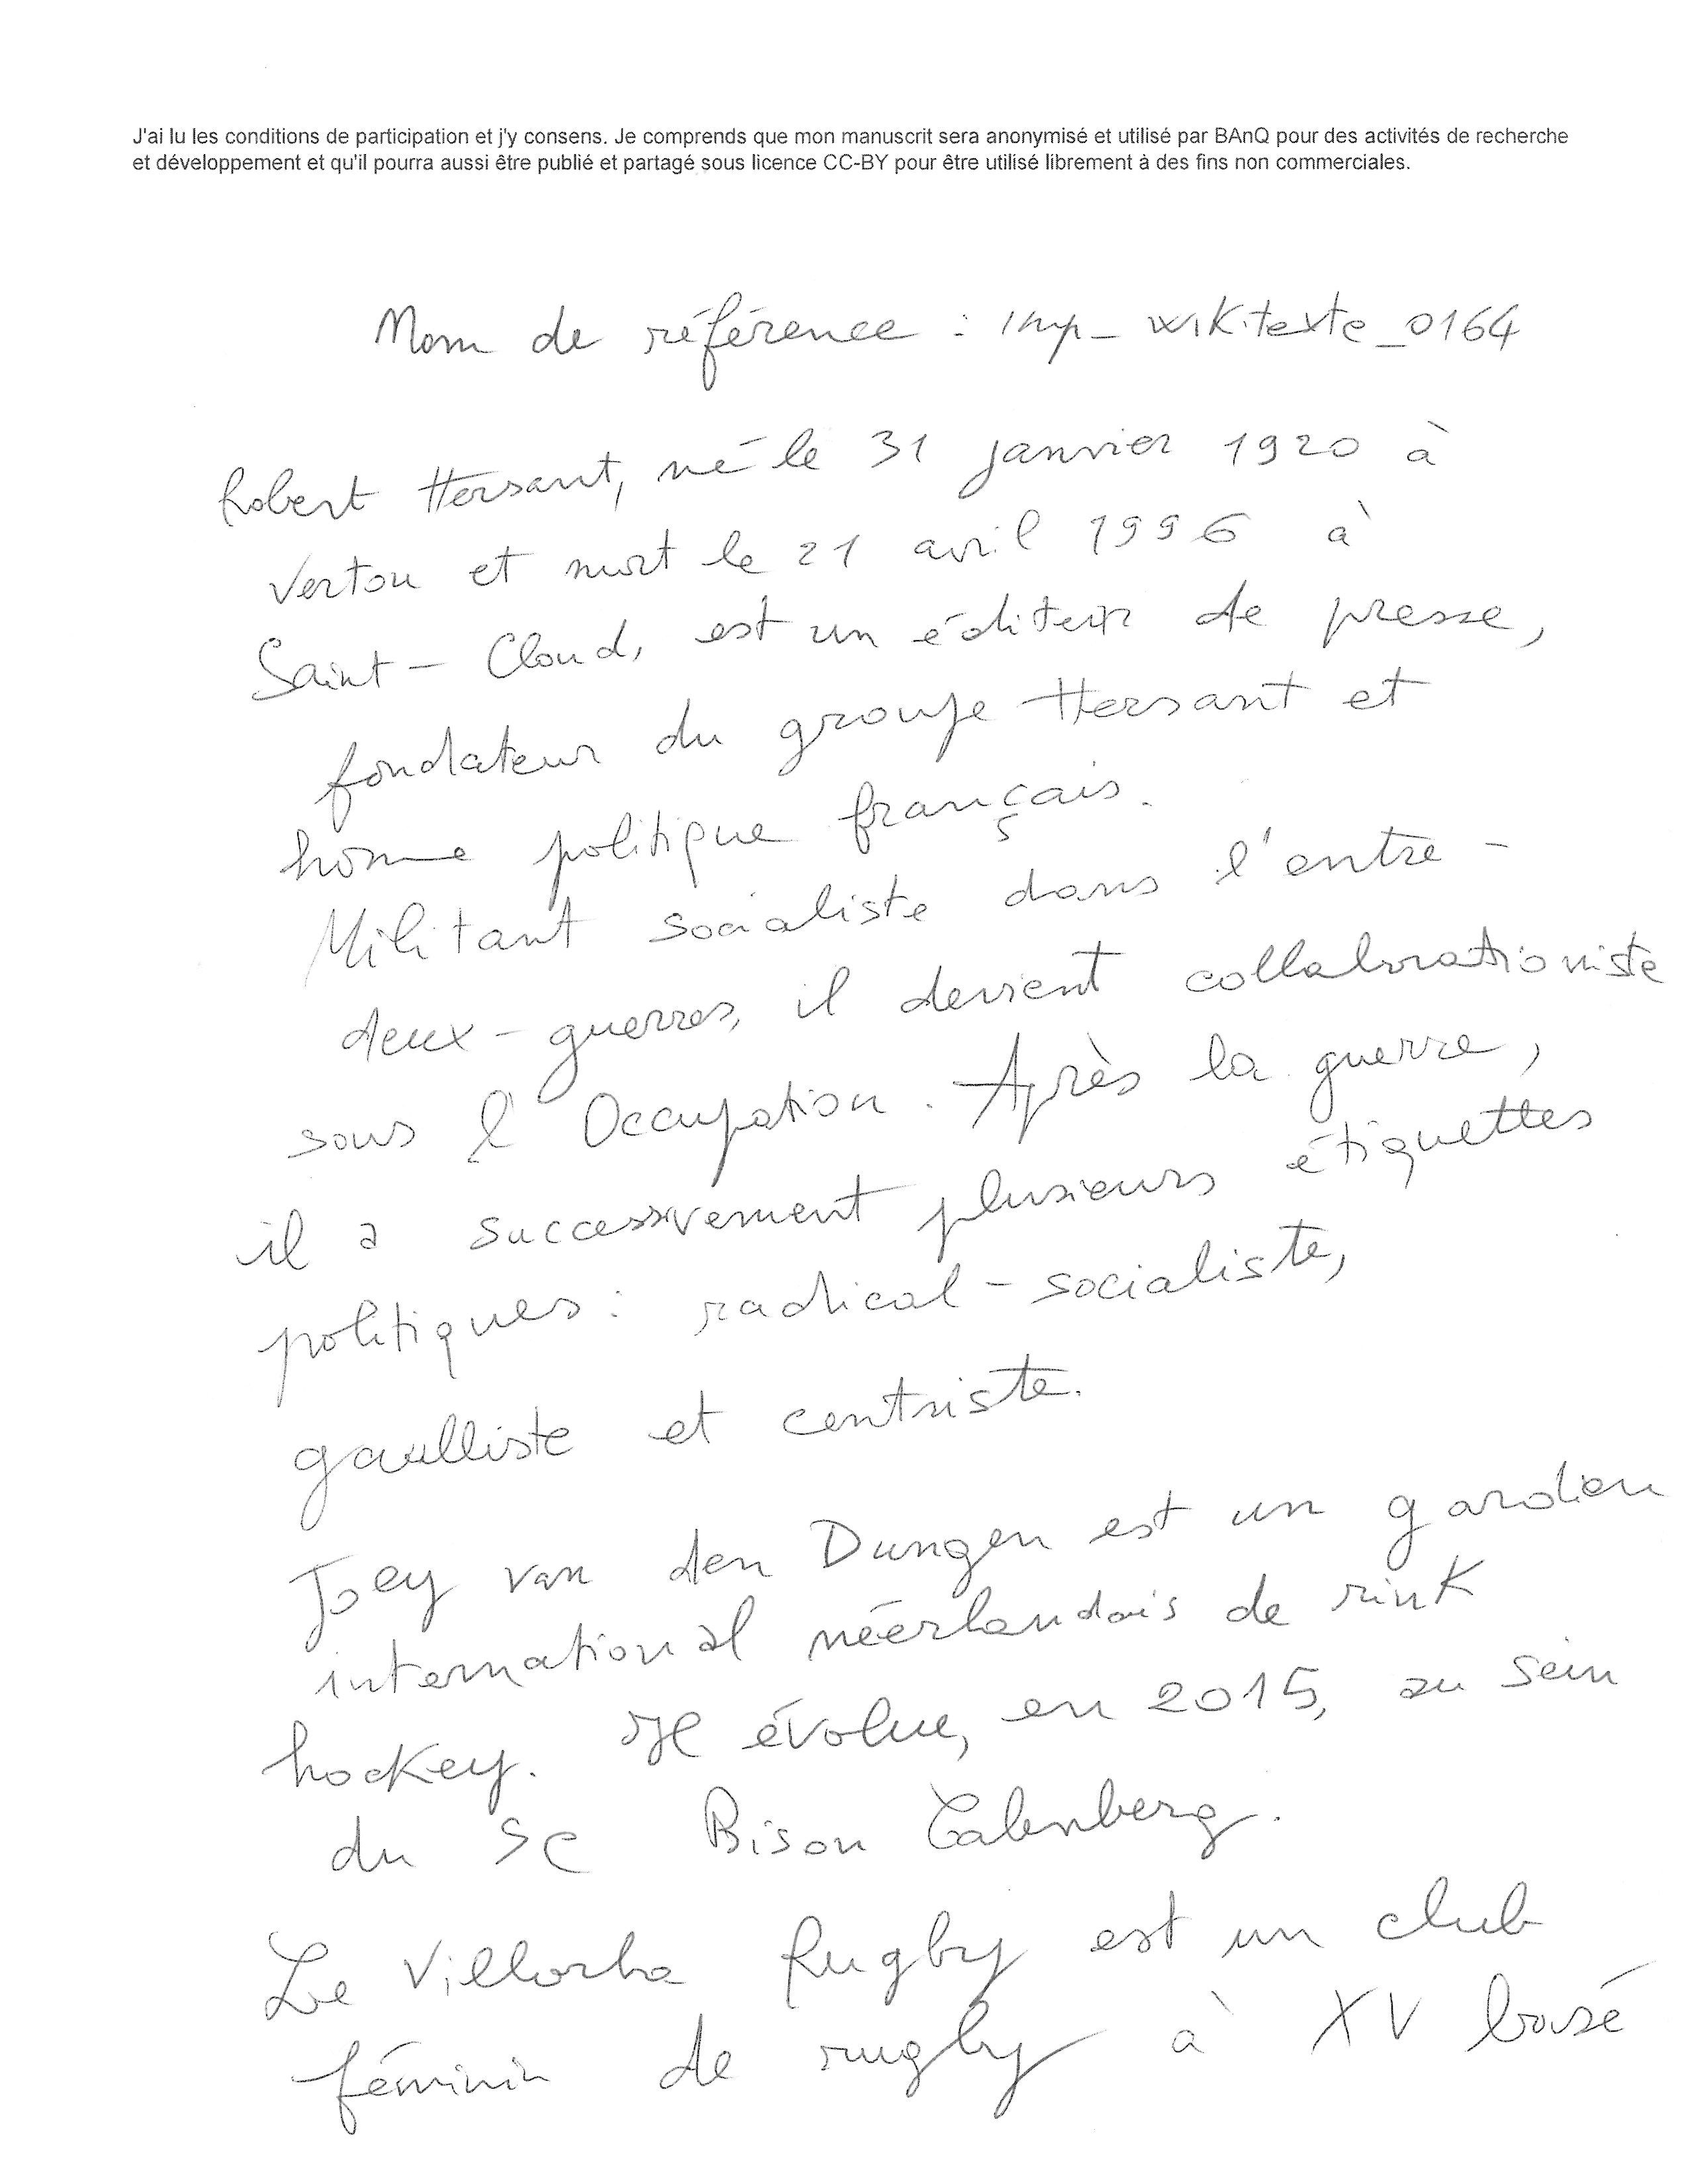 J'ai lu les conditions de participation et j'y consens. Je comprends que mon manuscrit sera anonymisé et utilisé par BAnQ pour des activités de recherche
et développement et qu'il pourra aussi être publié et partagé sous licence CC-BY pour être utilisé librement à des fins non commerciales.
Nom de référence : imp_wikitexte_0164
Robert Hersant, né le 31 janvier 1920 à
Vertou et mort le 21 avril 1996 à
Saint-Cloud, est un éditeur de presse,
fondateur du groupe Hersant et
homme politique français.
Militant socialiste dans l'entre-
deux-guerres, il devient collaborationiste
sous l'Occupation. Après la guerre,
il a successivement plusieurs étiquettes
politiques : radical-socialiste,
gaulliste et centriste.
Joey van den Dungen est un gardien
international néerlandais de rink
hockey. Il évolue, en 2015, au sein
du SC Bison Calenberg.
Le Villorba Rugby est un club
féminin de rugby à XV basé